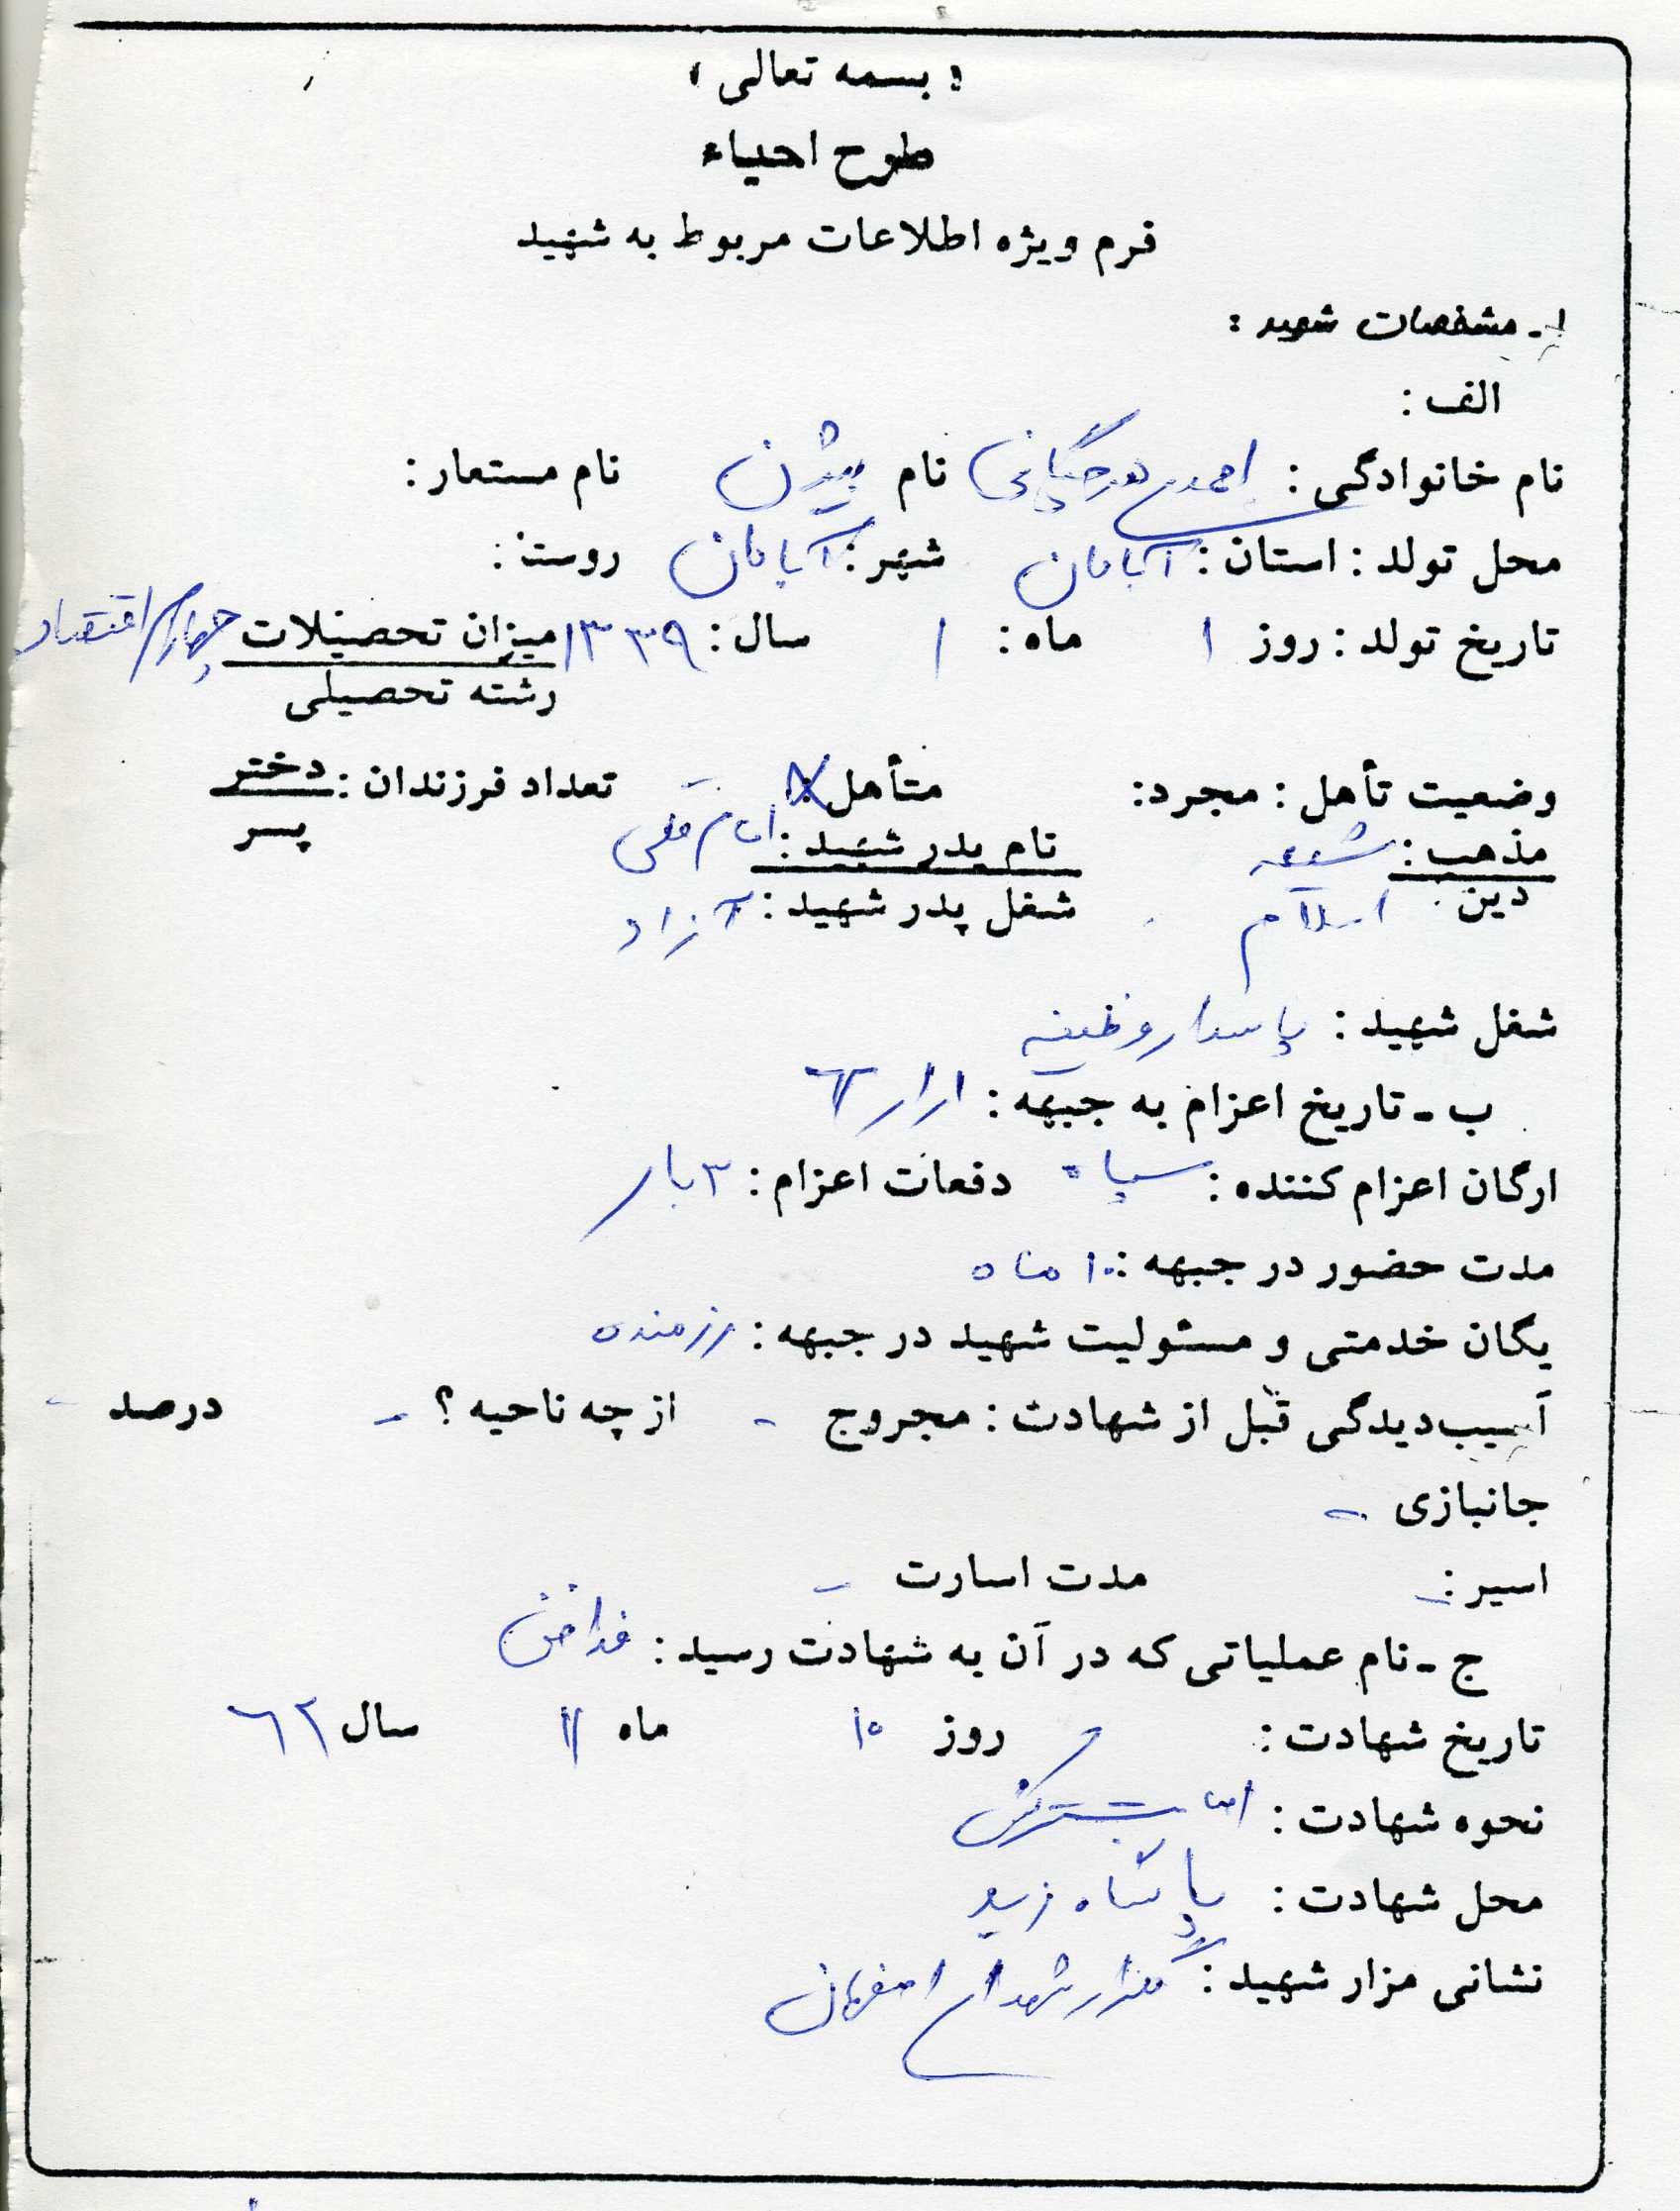 « بسمه تعالی »
طرح احیاء
فرم ویژه اطلاعات مربوط به شهید
۱ـ مشخصات شهید :
الف :
نام خانوادگی : احمدی نام بیژن نام مستعار :
محل تولد : استان : آبادان شهر : آبادان روستا :
تاریخ تولد : روز ۱ ماه : ۱ سال : ۱۳۳۹ میزان تحصیلات چهارم اقتصاد
رشته تحصیلی
وضعیت تأهل : مجرد : متأهل : X تعداد فرزندان : دختر -
پسر
مذهب : شیعه نام پدر شهید : امام قلی
دین : اسلام شغل پدر شهید : آزاد
شغل شهید : پاسدار وظیفه
ب ـ تاریخ اعزام به جبهه : ۱ر۱ر۶۲
ارگان اعزام کننده : سپاه دفعات اعزام : ۳ بار
مدت حضور در جبهه : ۱۰ ماه
یگان خدمتی و مسئولیت شهید در جبهه : رزمنده
آسیب‌دیدگی قبل از شهادت : مجروح - از چه ناحیه ؟ - درصد -
جانبازی -
اسیر : - مدت اسارت -
ج ـ نام عملیاتی که در آن به شهادت رسید :
تاریخ شهادت : روز ۱۰ ماه ۱۱ سال ۶۲
نحوه شهادت : اصابت ترکش
محل شهادت : پاسگاه زید
نشانی مزار شهید : گلزار شهدای اصفهان